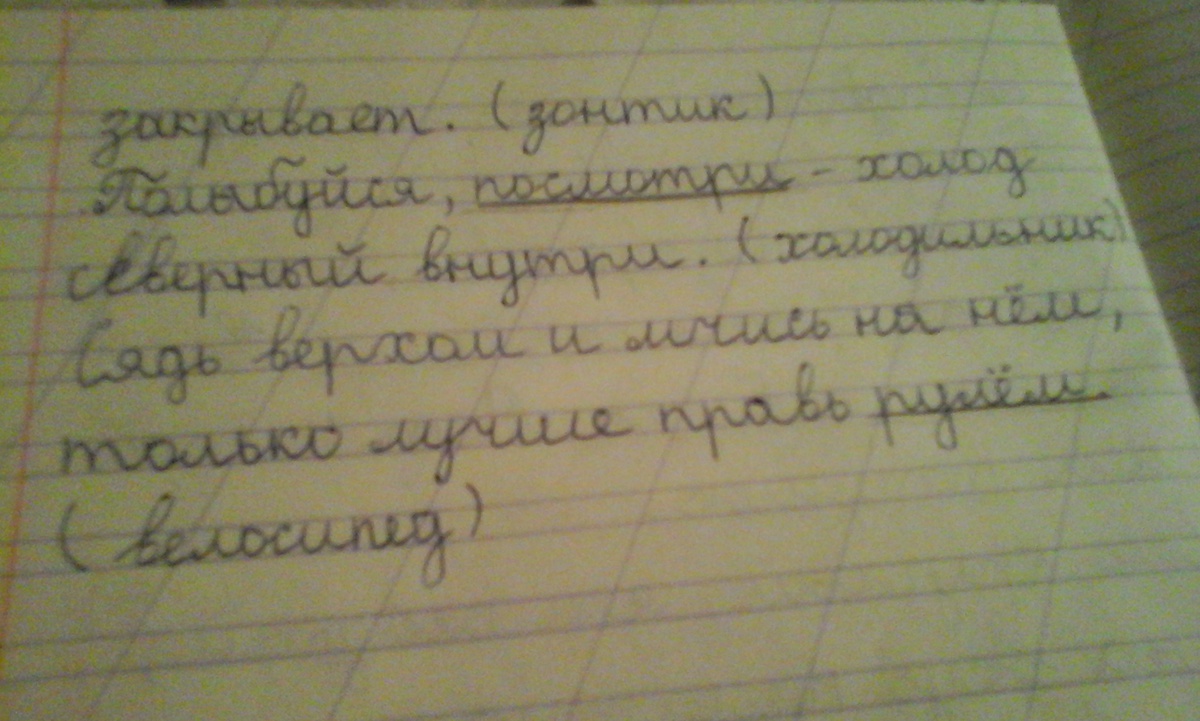 закрывает. (зонтик)
Полыбуйся, посмотри - холод
северный внутри. (холодильник)
Сядь верхом и мчись на нём,
только лучше правь рулём.
(велосипед)